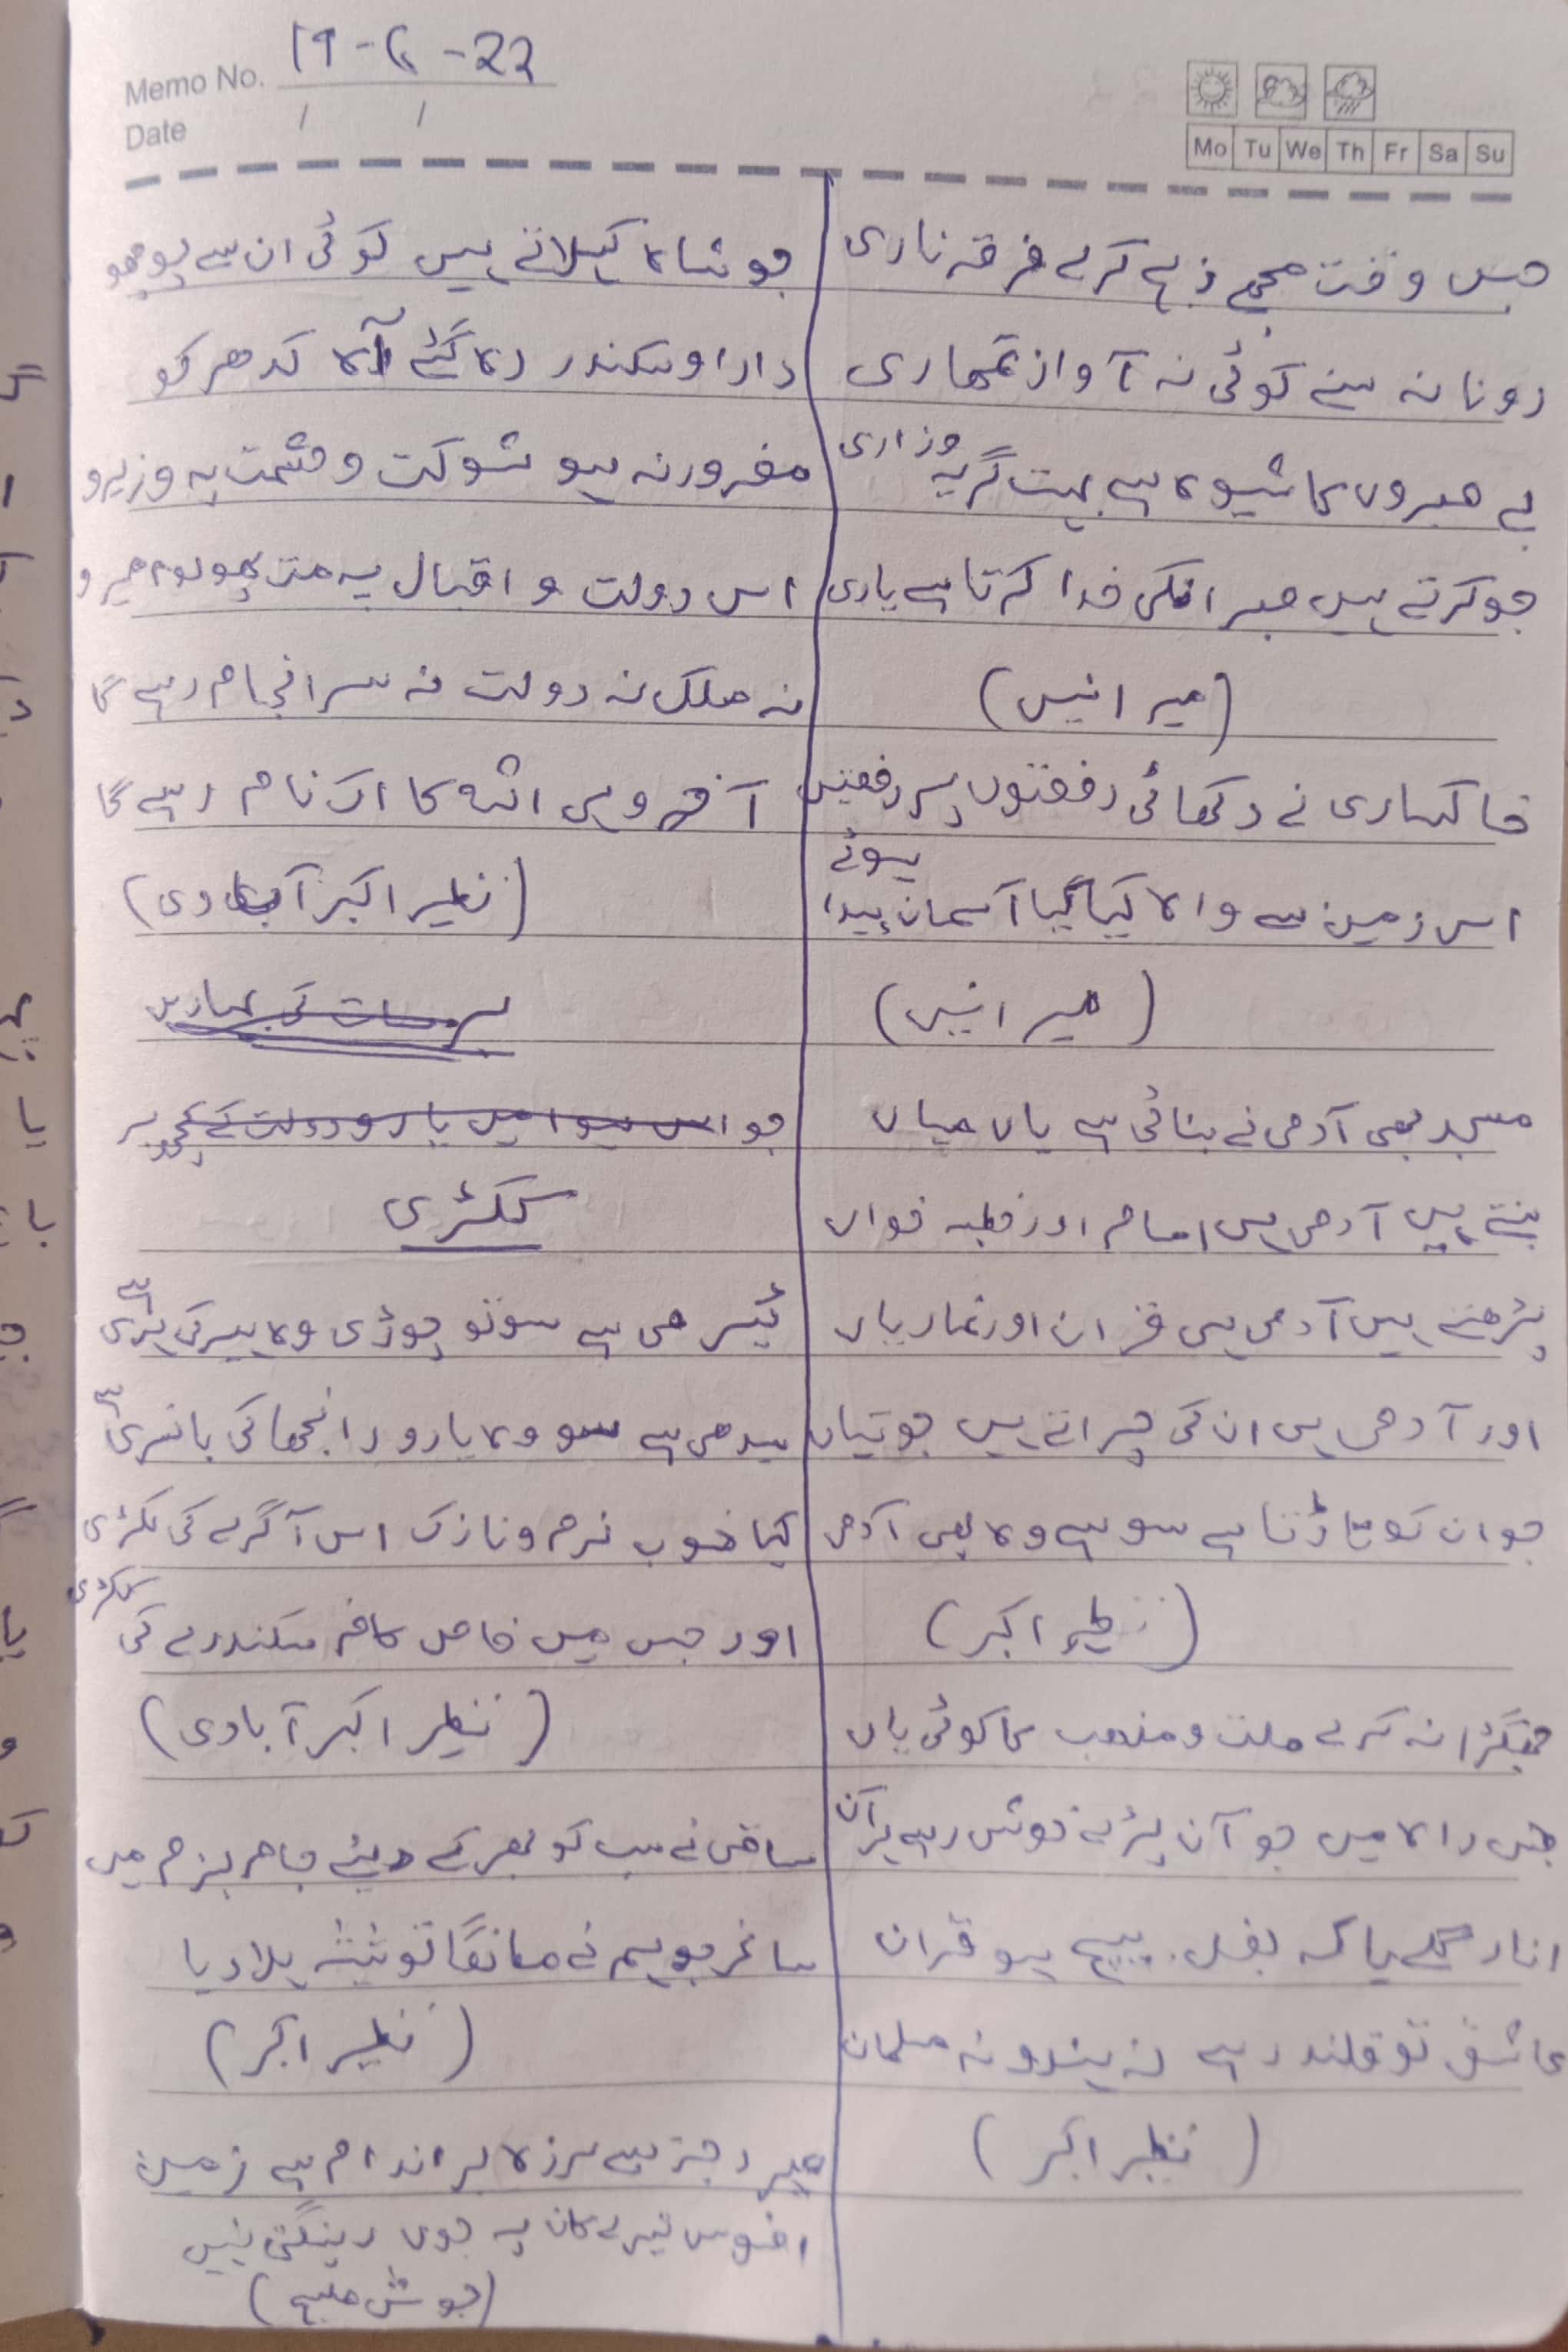 Memo No. 19-6-22
Date / /
Mo Tu We Th Fr Sa Su
جس وقت مجھے ذبح کرے فرقہ ناری
رونا نہ سنے کوئی نہ آواز تمھاری
بے صبروں کا شیوہ ہے بہت گریہ وزاری
جو کرتے ہیں صبر انکی خدا کرتا ہے یاری
(میر انیس)
خاکساری نے دکھائی رفعتوں پر رفعتیں
اس زمین سے واہ کیا کیا آسمان پیدا ہوئے
(میر انیس)
مسجد بھی آدمی نے بنائی ہے یاں میاں
بنتے ہیں آدمی ہی امام اور خطبہ خواں
پڑھتے ہیں آدمی ہی قرآن اور نماز یاں
اور آدمی ہی ان کی چراتے ہیں جوتیاں
جو ان کو تاڑتا ہے سو ہے وہ بھی آدمی
(نظیر اکبر)
جھگڑا نہ کرے ملت و مذہب کا کوئی یاں
جس راہ میں جو آن پڑے خوش رہے ہر آن
زنار گلے یا کہ بغل بیچ ہو قران
عاشق تو قلندر ہے نہ ہندو نہ مسلمان
(نظیر اکبر)
جو شاہ کہلاتے ہیں کوئی ان سے پوچھو
دارا و سکندر وہ گئے آہ کدھر کو
مغرور نہ ہو شوکت و حشمت پہ وزیرو
اس دولت و اقبال پہ مت پھولو امیرو
نہ ملک نہ دولت نہ سر انجام رہے گا
آخر وہی اللہ کا اک نام رہے گا
(نظیر اکبر آبادی)
برسات کی بہاریں
جو اس ہوا میں یارو دولت کے
ککڑی
ٹیڑھی ہے سو تو چوڑی وہ ہیر کی ہری ہے
سیدھی ہے سو وہ یارو رانجھا کی بانسری ہے
کیا خوب نرم و نازک اس آگرے کی ککڑی
اور جس میں خاص کافر سکندرے کی ککڑی
(نظیر اکبر آبادی)
ساقی نے سب کو بھر کے دیئے جام بزم میں
ساغر جو ہم نے مانگا تو شیشہ ہلا دیا
(نظیر اکبر)
میر رجز سے لرزہ بر اندام ہے زمین
افسوس تیرے کان پہ جوں رینگتی نہیں
(جوش ملیح)